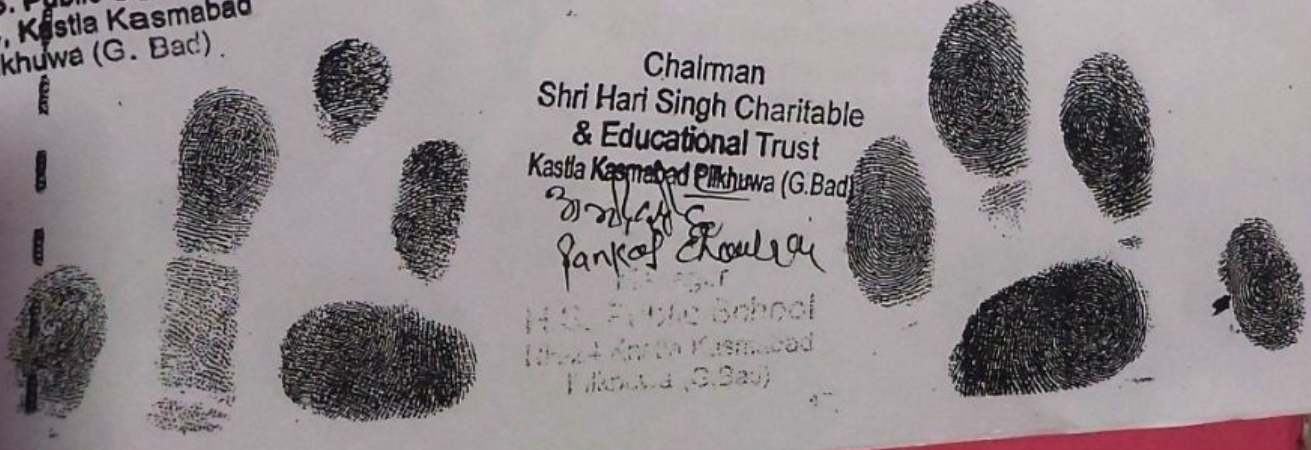 , Kastla Kasmabad
khuwa (G. Bad)
Chairman
Shri Hari Singh Charitable
& Educational Trust
Kastla Kasmabad Pilkhuwa (G.Bad)
Pankaj
H.S. Public School
Kasmabad
Pilkhuwa (G.Bad)